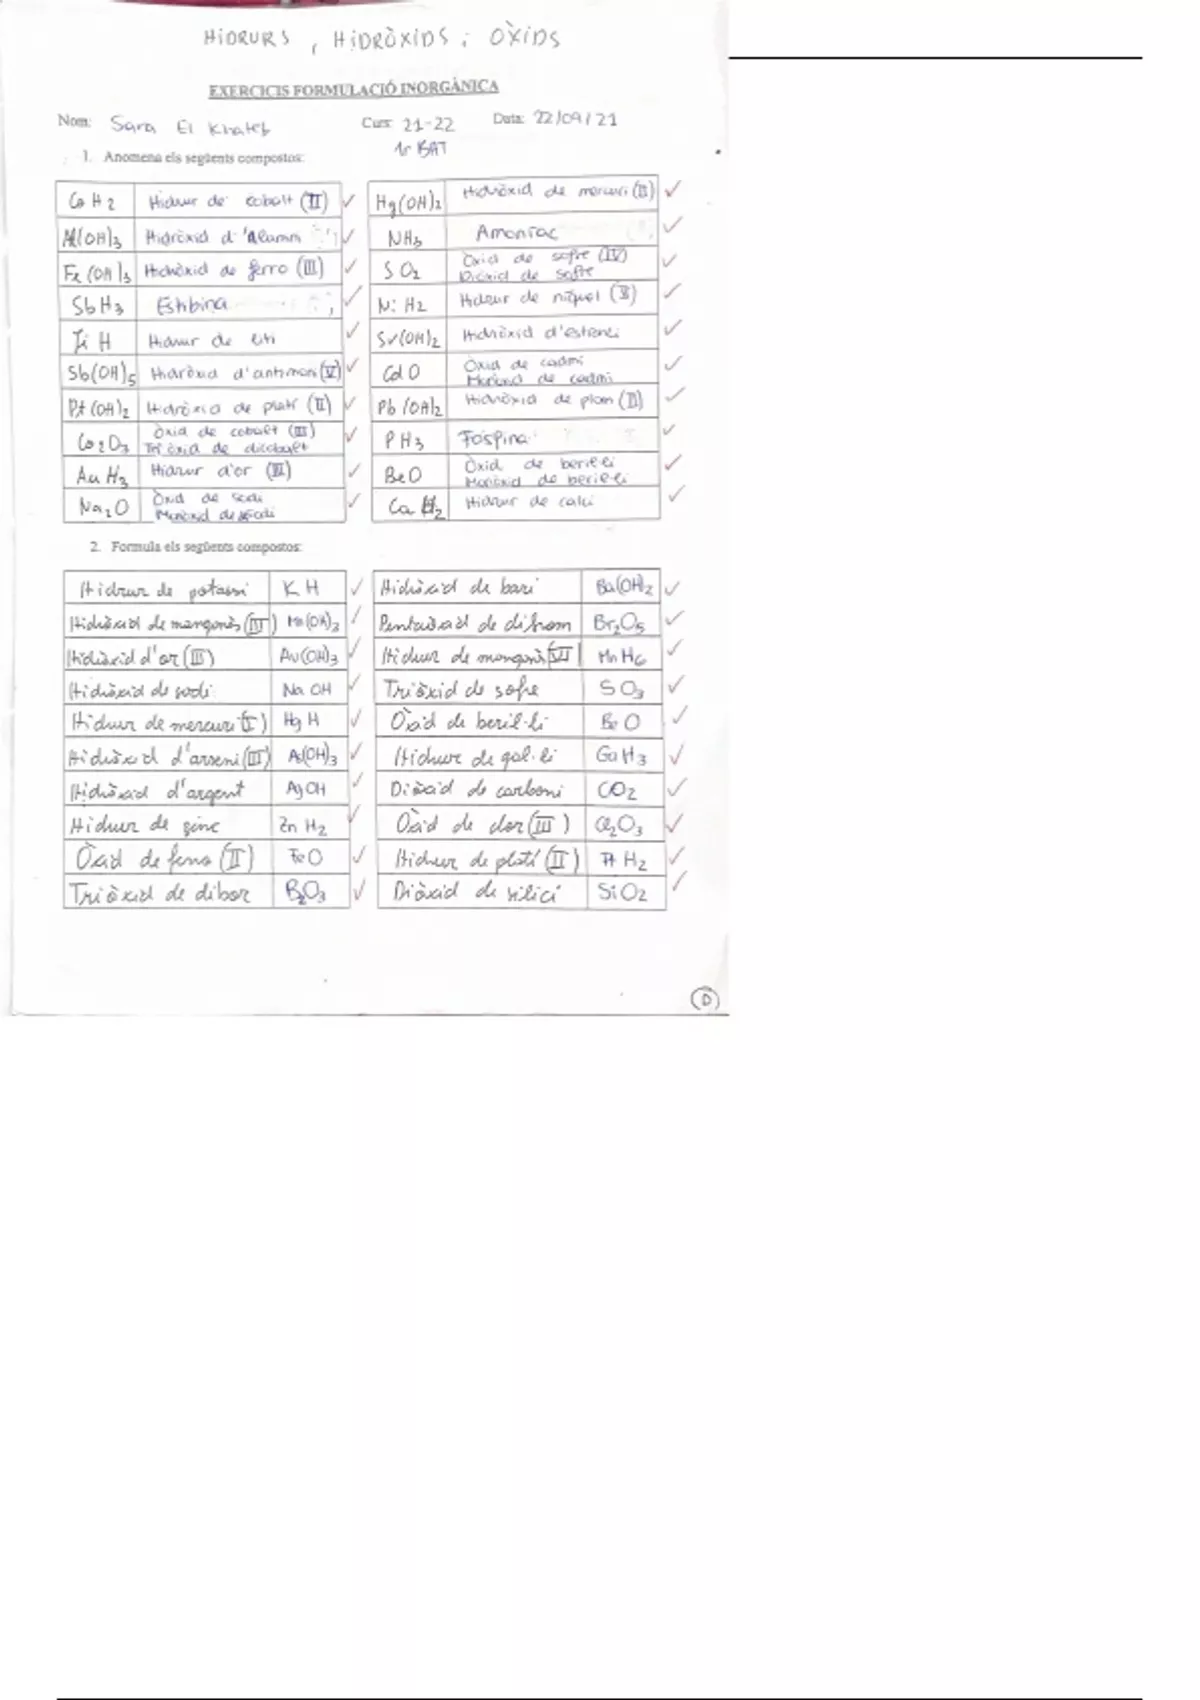 HIDRURS, HIDRÒXIDS i ÒXIDS
EXERCICIS FORMULACIÓ INORGÀNICA
Nom: Sara El Khateb Curs: 21-22 Data: 22/09/21
1r BAT
1. Anomena els següents compostos:
CoH2 Hidrur de cobalt (II) ✓ Hg(OH)2 Hidròxid de mercuri (II) ✓
Al(OH)3 Hidròxid d'alumini ✓ NH3 Amoníac ✓
Fe(OH)3 Hidròxid de ferro (III) ✓ SO2 Òxid de sofre (IV)
Diòxid de sofre ✓
SbH3 Estibina ✓ NiH2 Hidrur de níquel (II) ✓
LiH Hidrur de liti ✓ Sr(OH)2 Hidròxid d'estronci ✓
Sb(OH)5 Hidròxid d'antimoni (V) ✓ CdO Òxid de cadmi
Monòxid de cadmi ✓
Pt(OH)2 Hidròxid de platí (II) ✓ Pb(OH)2 Hidròxid de plom (II) ✓
Co2O3 Òxid de cobalt (III)
Triòxid de dicobalt ✓ PH3 Fosfina ✓
AuH3 Hidrur d'or (III) ✓ BeO Òxid de beril·li
Monòxid de beril·li ✓
Na2O Òxid de sodi
Monòxid de sodi ✓ CaH2 Hidrur de calci ✓
2. Formula els següents compostos:
Hidrur de potassi KH ✓ Hidròxid de bari Ba(OH)2 ✓
Hidròxid de manganès Mn(OH)3 ✓ Pentaòxid de dibrom Br2O5 ✓
Hidròxid d'or (III) Au(OH)3 ✓ Hidrur de manganès (VI) MnH6 ✓
Hidròxid de sodi NaOH ✓ Triòxid de sofre SO3 ✓
Hidrur de mercuri (I) HgH ✓ Òxid de beril·li BeO ✓
Hidròxid d'arseni (III) As(OH)3 ✓ Hidrur de gal·li GaH3 ✓
Hidròxid d'argent AgOH ✓ Diòxid de carboni CO2 ✓
Hidrur de zinc ZnH2 ✓ Òxid de clor (III) Cl2O3 ✓
Òxid de ferro (II) FeO ✓ Hidrur de platí (II) PtH2 ✓
Triòxid de dibor B2O3 ✓ Diòxid de silici SiO2 ✓